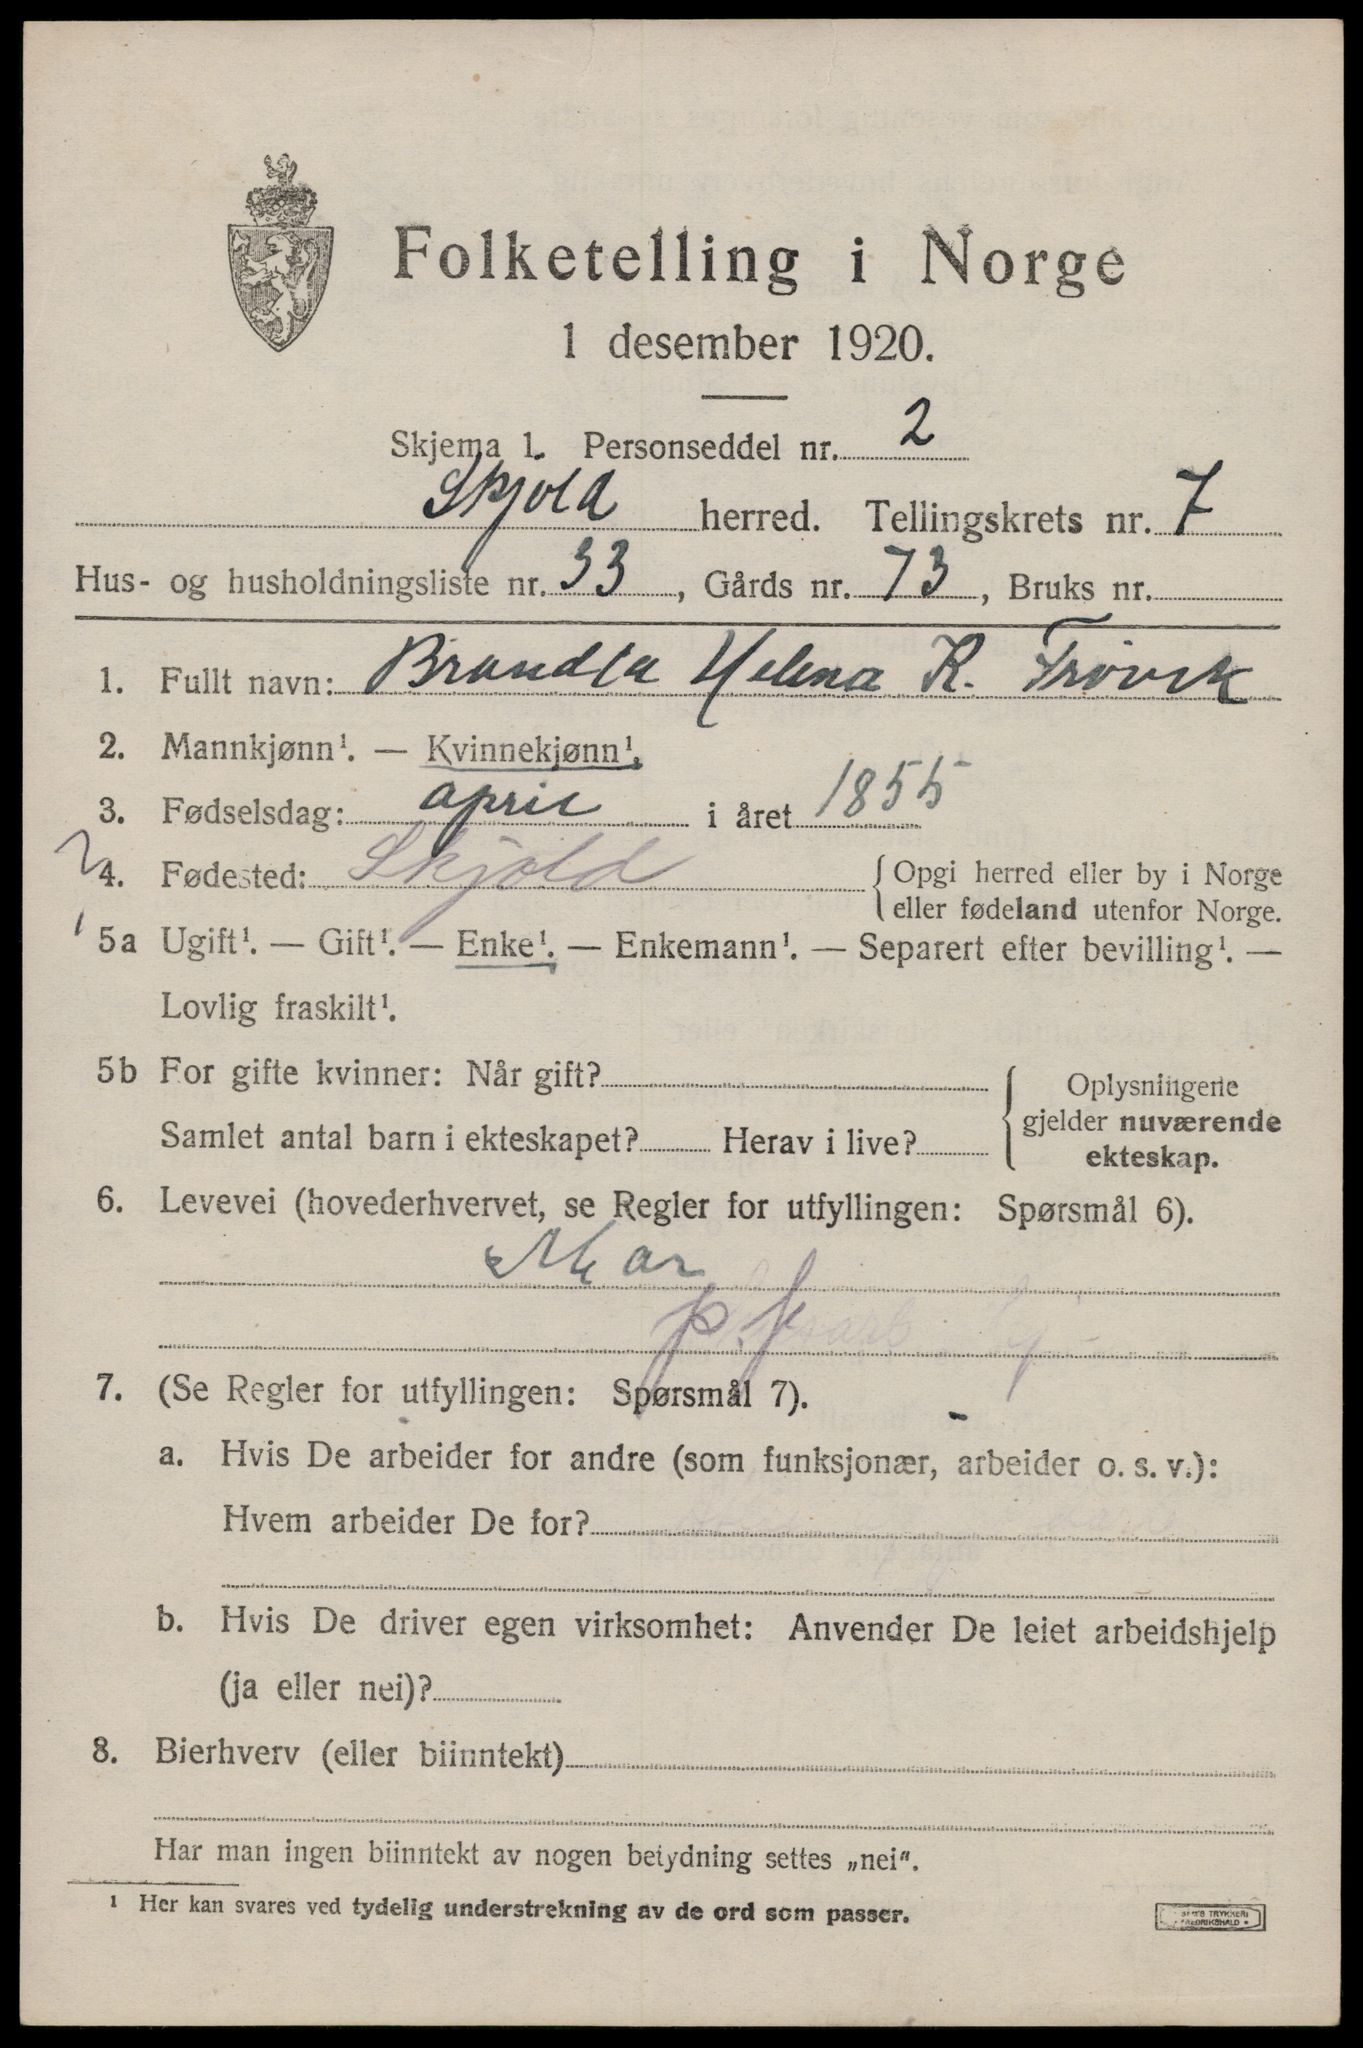 Folketelling i Norge
1 desember 1920.
Skjema 1. Personseddel nr. 2
Skjold herred. Tellingskrets nr. 7
Hus- og husholdningsliste nr. 33, Gårds nr. 73, Bruks nr.
1. Fullt navn: Brundla Helena K. Frøvik
2. Mannkjønn¹. — Kvinnekjønn¹.
3. Fødselsdag: april i året 1855
4. Fødested: Skjold { Opgi herred eller by i Norge
eller fødeland utenfor Norge.
5a Ugift¹. — Gift¹. — Enke¹. — Enkemann¹. — Separert efter bevilling¹. —
Lovlig fraskilt¹.
5b For gifte kvinner: Når gift? { Oplysningene
gjelder nuværende
Samlet antal barn i ekteskapet? Herav i live?
ekteskap.
6. Levevei (hovederhvervet, se Regler for utfyllingen: Spørsmål 6).
7. (Se Regler for utfyllingen: Spørsmål 7).
a. Hvis De arbeider for andre (som funksjonær, arbeider o. s. v.):
Hvem arbeider De for?
b. Hvis De driver egen virksomhet: Anvender De leiet arbeidshjelp
(ja eller nei)?
8. Bierhverv (eller biinntekt)
Har man ingen biinntekt av nogen betydning settes „nei“.
¹ Her kan svares ved tydelig understrekning av de ord som passer.